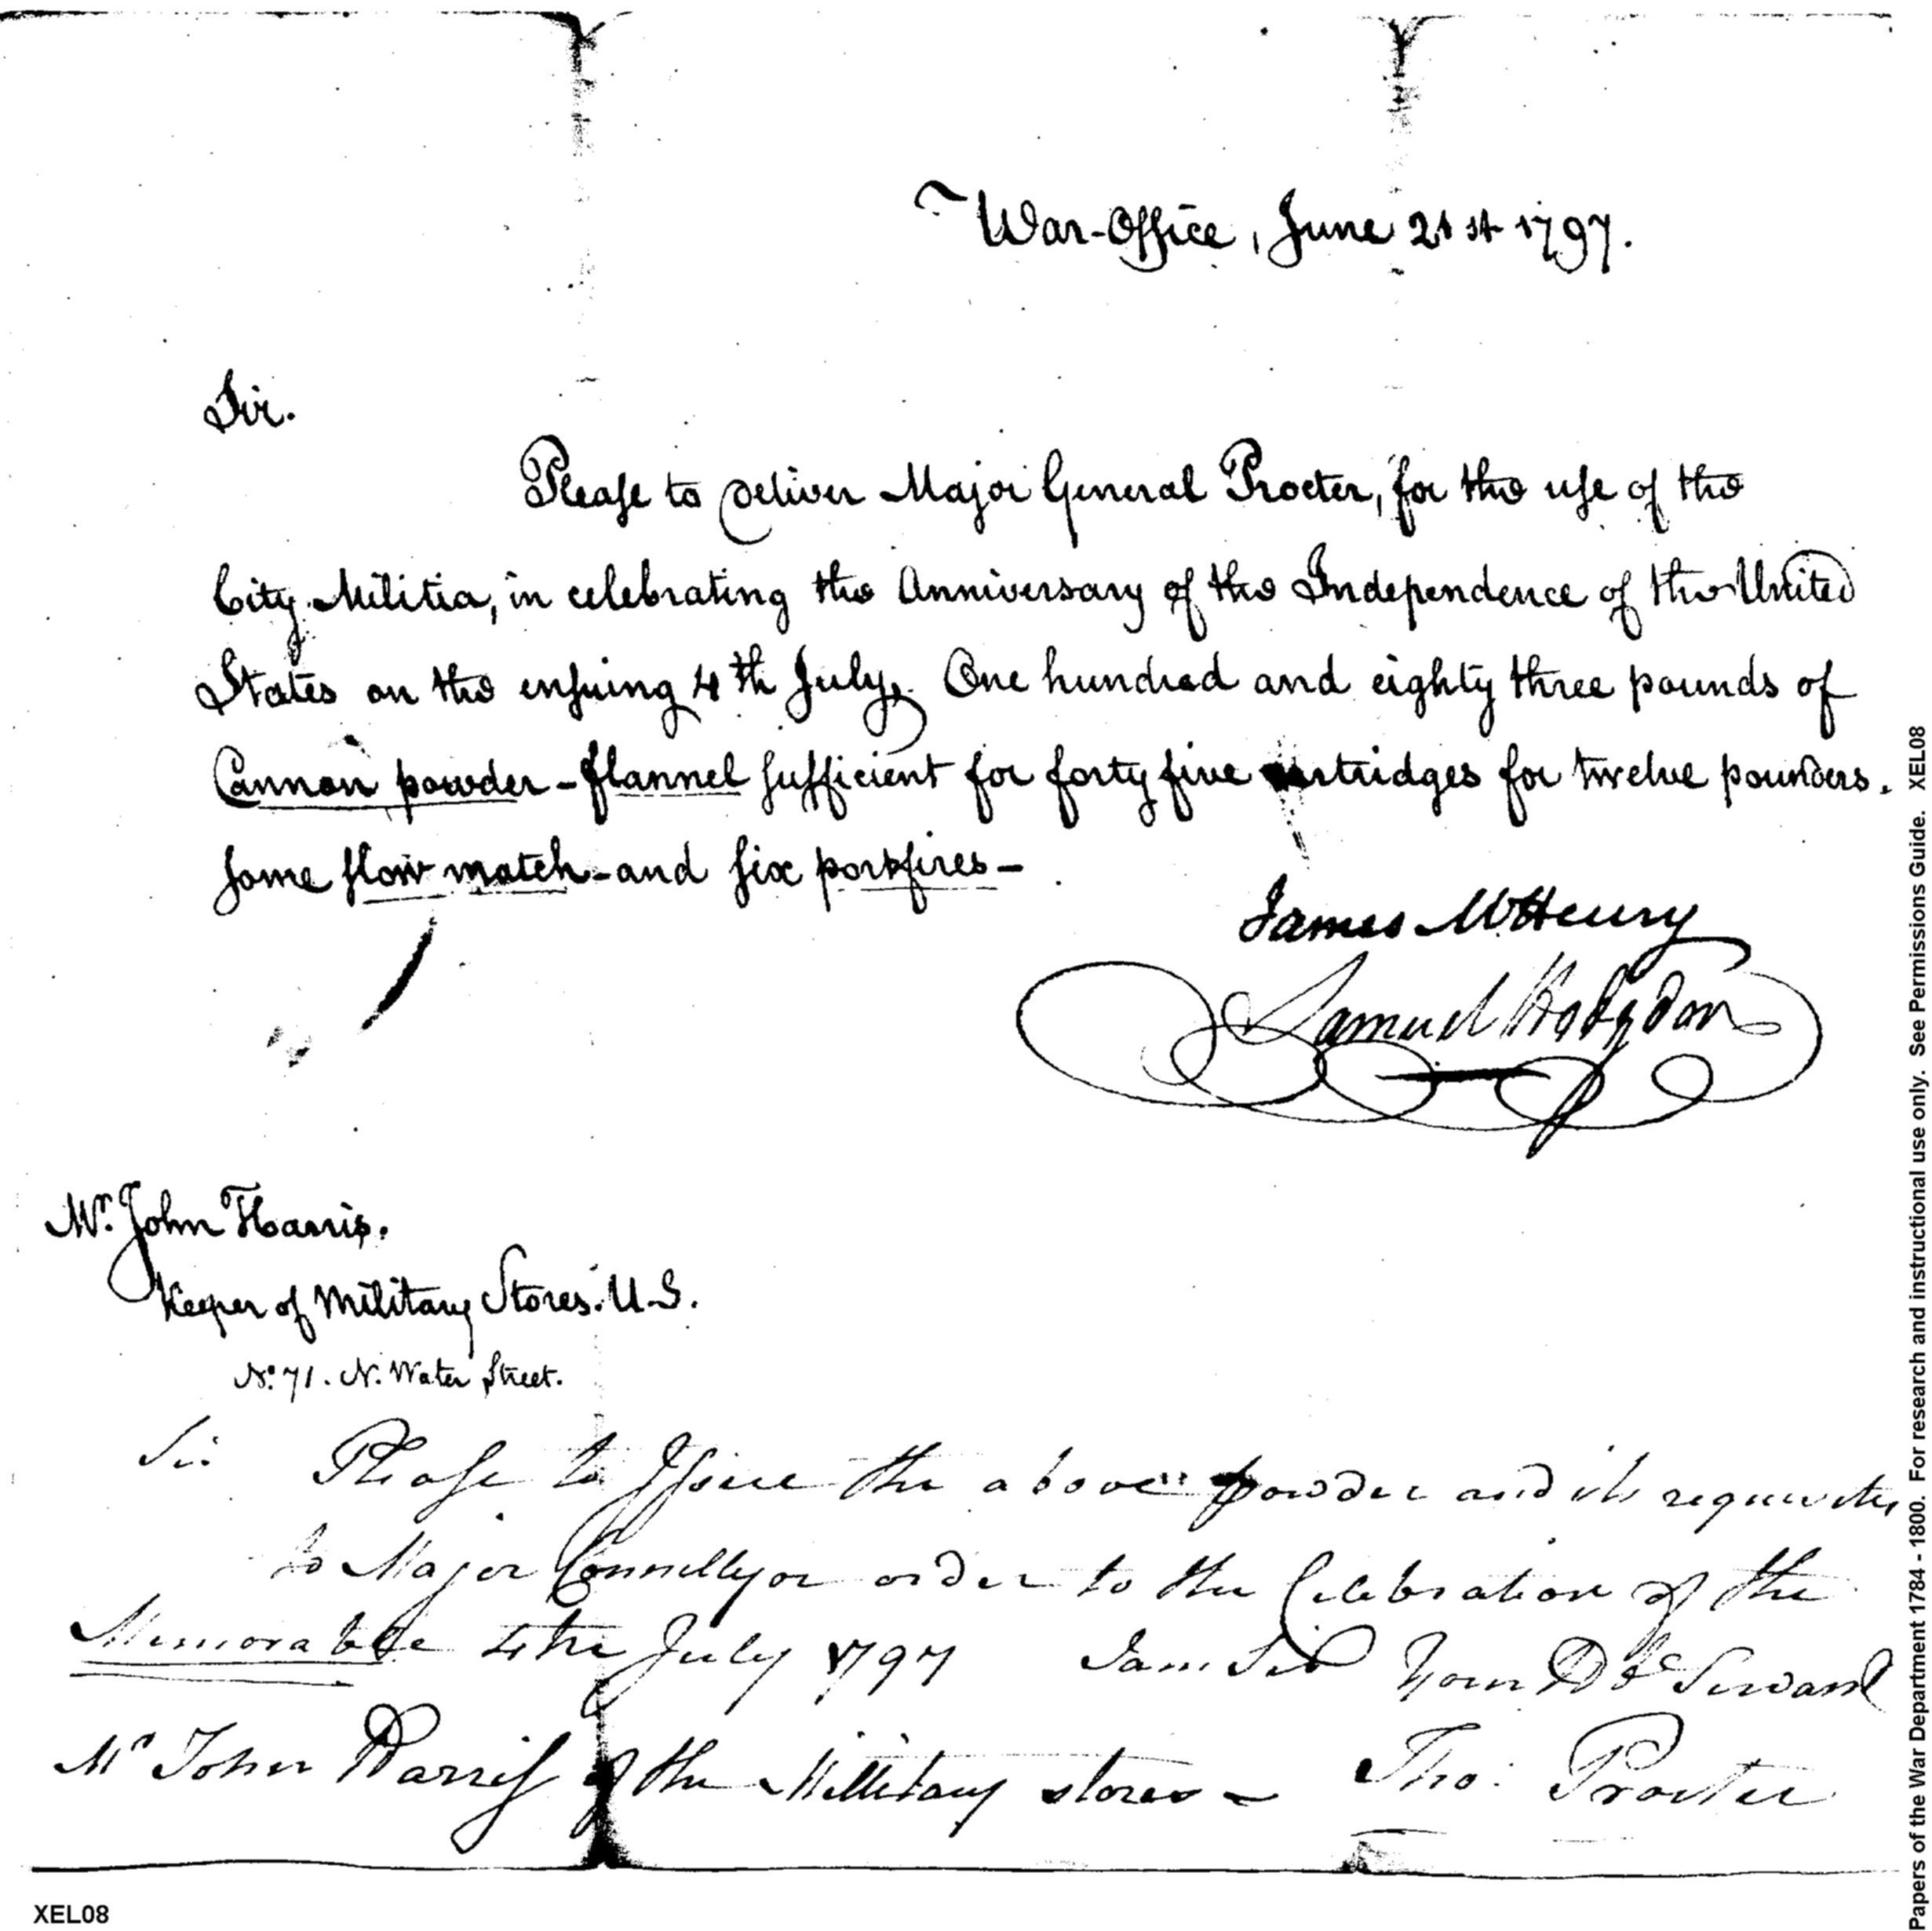 War-Office, June 21st 1797.
Sir.
Please to Deliver Major General Procter, for the use of the
City Militia, in celebrating the Anniversary of the Independence of the United
States on the ensuing 4th July, One hundred and eighty three pounds of
Cannon powder - flannel sufficient for forty five cartridges for twelve pounders.
some slow match - and six portfires -
James McHenry
Samuel Hodgdon
Mr. John Harris.
Keeper of Military Stores. U.S.
No. 71. N. Water Street.
Sir Please to Issue the above powder and its requisites
to Major Connelly or order to the Celebration of the
Memorable 4th July 1797 I am Sir Your Servant
Mr John Harris of the Millitary stores - Tho: Procter
XEL08
Papers of the War Department 1784 - 1800. For research and instructional use only. See Permissions Guide. XEL08